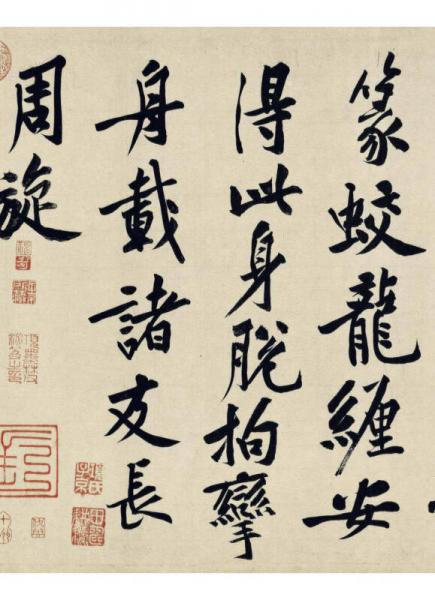 篆蛟龍纏安
得此身脫拘攣
舟載諸友長
周旋